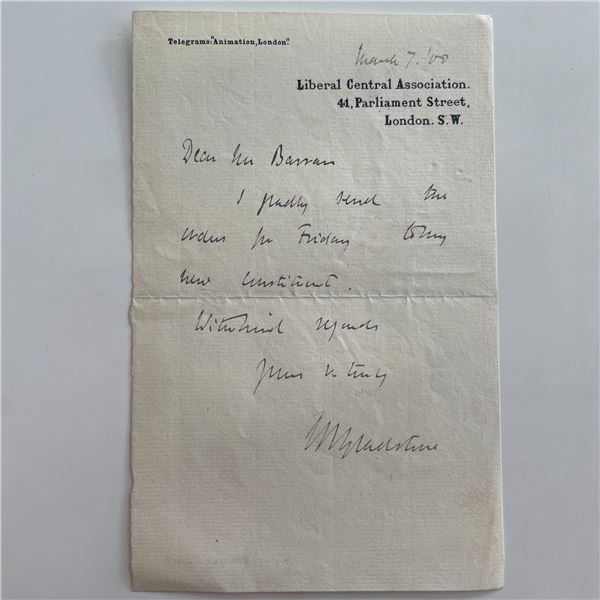 Telegrams: "Animation, London."
March 7. '00
Liberal Central Association.
41, Parliament Street,
London. S.W.
Dear Mr Barran
I gladly send the
order for Friday to my
new constituent.
With kind regards
Yours v truly
Gladstone